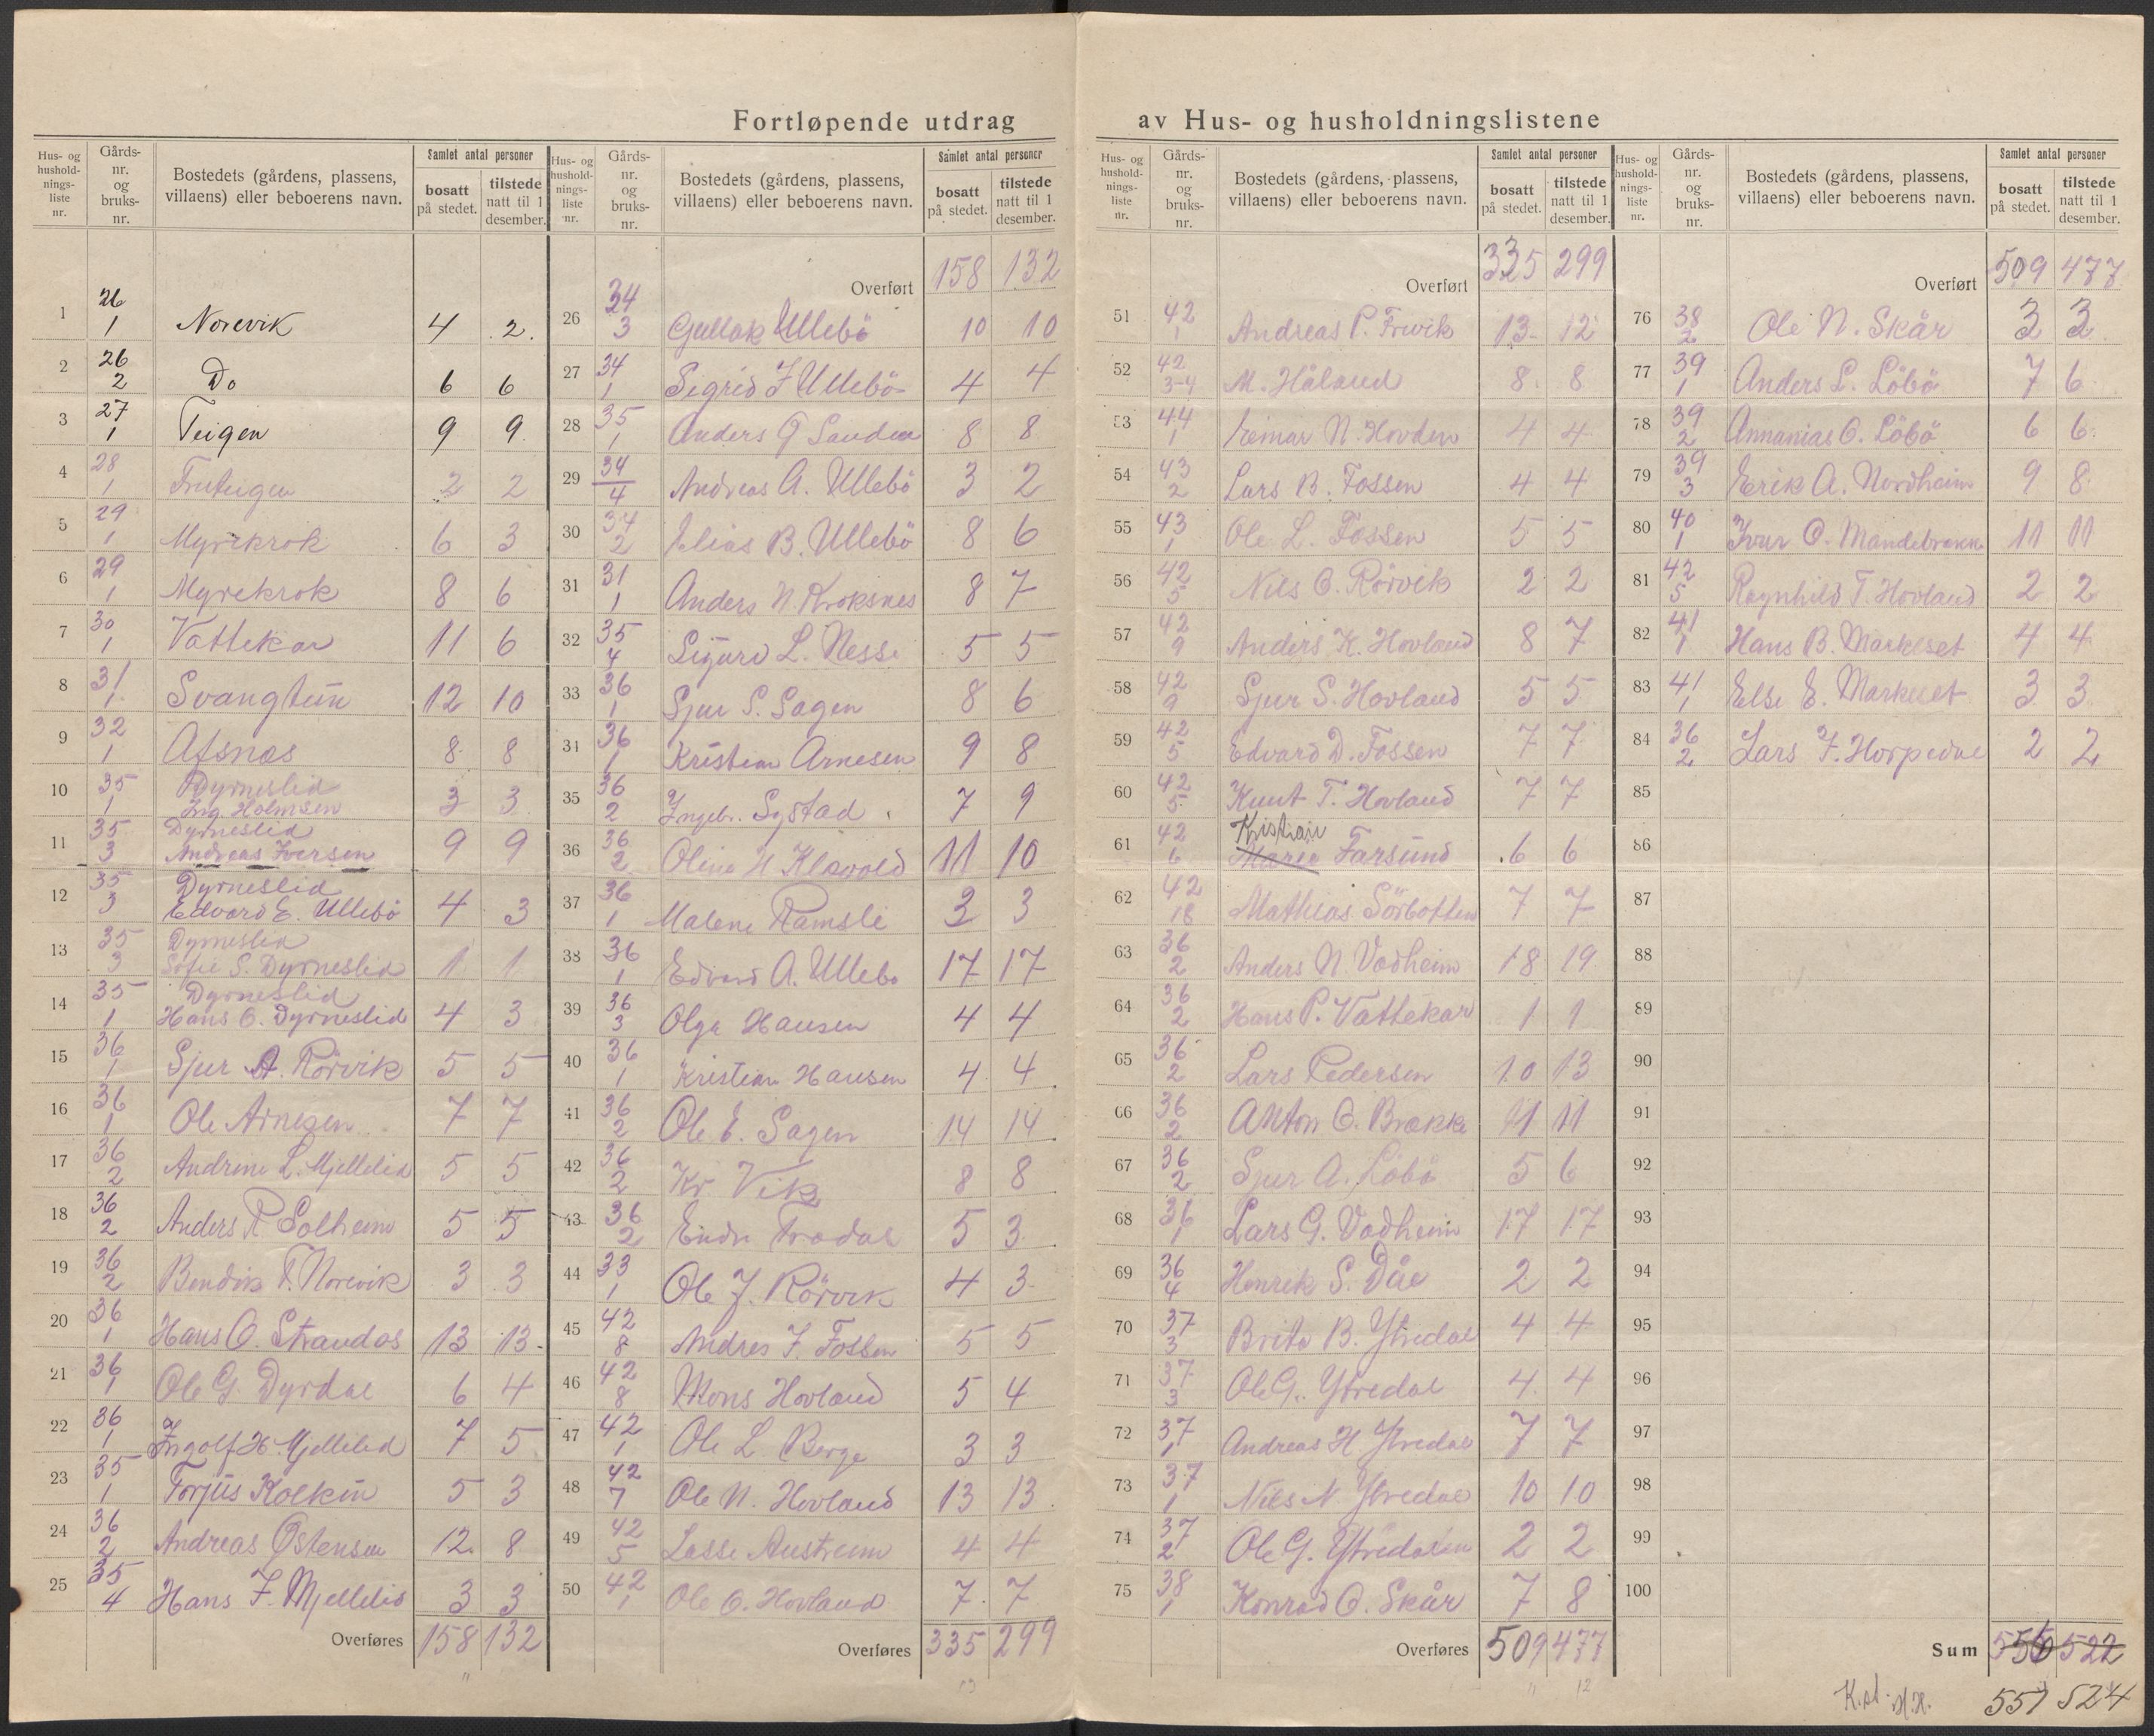 Fortløpende utdrag av Hus- og husholdningslistene
Hus- og husholdnings-liste nr. Gårds-nr. og bruks-nr. Bostedets (gårdens, plassens, villaens) eller beboerens navn. Samlet antal personer bosatt på stedet. tilstede natt til 1 desember.
1 26 1 Norevik 4 2
2 26 2 Do 6 6
3 27 1 Teigen 9 9
4 28 1 2 2
5 29 1 Myrekrok 6 3
6 29 1 Myrekrok 8 6
7 30 1 Vattekar 11 6
8 31 1 Svangtun 12 10
9 32 1 Afsnes 8 8
10 35 1 Dyrneslid Ing. Holmsen 3 3
11 35 3 Dyrneslid Andreas Iversen 9 9
12 35 3 Dyrneslid Edvard E. Ullebö 4 3
13 35 3 Dyrneslid Sofie S. Dyrneslid 1 1
14 35 1 Dyrneslid Hans O. Dyrneslid 4 3
15 36 1 Sjur A. Rörvik 5 5
16 36 1 Ole Arnesen 7 7
17 36 2 Andrine L. Mjellelid 5 5
18 36 2 Anders R Solheim 5 5
19 36 2 Bendik T. Norevik 3 3
20 36 1 Hans O. Strandos 13 13
21 36 1 Ole G. Dyrdal 6 4
22 36 1 Ingolf H. Mjellelid 7 5
23 35 1 Torjus Kolkin 5 3
24 36 2 Andreas Østensen 12 8
25 35 4 Hans J. Mjellelid 3 3
Overføres 158 132
Hus- og husholdnings-liste nr. Gårds-nr. og bruks-nr. Bostedets (gårdens, plassens, villaens) eller beboerens navn. Samlet antal personer bosatt på stedet. tilstede natt til 1 desember.
Overført 158 132
26 34 3 Gullak Ullebö 10 10
27 34 1 Sigrid J Ullebö 4 4
28 35 1 Anders G Sanden 8 8
29 34 4 Andreas A. Ullebö 3 2
30 34 2 Elias B. Ullebö 8 6
31 31 1 Anders N. Kroksnes 8 7
32 35 4 Sigurd L. Nesse 5 5
33 36 1 Sjur S. Sagen 8 6
34 36 1 Kristian Arnesen 9 8
35 36 2 Ingebr. Systad 7 9
36 36 2 Oline H Klævold 11 10
37 36 1 Malene Ramsli 3 3
38 36 1 Edvard A. Ullebo 17 17
39 36 3 Olga Hansen 4 4
40 36 1 Kristian Hansen 4 4
41 36 2 Ole E. Sagen 14 14
42 36 2 Kr Vik 8 8
43 36 2 Endre Fradal 5 3
44 33 1 Ole J. Rörvik 4 3
45 42 8 Andres J. Fossen 5 5
46 42 8 Mons Hovland 5 4
47 42 1 Ole L. Berge 3 3
48 42 7 Ole N. Hovland 13 13
49 42 5 Lasse Austreim 4 4
50 42 1 Ole O. Hovland 7 7
Overføres 335 299
Hus- og husholdnings-liste nr. Gårds-nr. og bruks-nr. Bostedets (gårdens, plassens, villaens) eller beboerens navn. Samlet antal personer bosatt på stedet. tilstede natt til 1 desember.
Overført 335 299
51 42 1 Andreas P. Frivik 13 12
52 42 3-4 M. Håland 8 8
53 44 1 Einar N. Hovden 4 4
54 43 2 Lars B. Fossen 4 4
55 43 1 Ole L. Fossen 5 5
56 42 5 Nils O. Rörvik 2 2
57 42 9 Anders K. Hovland 8 7
58 42 9 Sjur S. Hovland 5 5
59 42 5 Edvard D. Fossen 7 7
60 42 5 Knut T. Hovland 7 7
61 42 6 Kristian Farsund 6 6
62 42 18 Mathias Sörbotten 7 7
63 36 2 Anders N. Vadheim 18 19
64 36 2 Hans P. Vattekar 1 1
65 36 2 Lars Pedersen 10 13
66 36 2 Anton O. Brække 11 11
67 36 2 Sjur A. Löbö 5 6
68 36 1 Lars G. Vadheim 17 17
69 36 4 Henrik S. Dåe 2 2
70 37 3 Brita B. Ytredal 4 4
71 37 3 Ole G. Ytredal 4 4
72 37 1 Andreas H Ytredal 7 7
73 37 1 Nils N Ytredal 10 10
74 37 2 Ole G. Ytredalen 2 2
75 38 1 Konrad O. Skår 7 8
Overføres 509 477
Hus- og husholdnings-liste nr. Gårds-nr. og bruks-nr. Bostedets (gårdens, plassens, villaens) eller beboerens navn. Samlet antal personer bosatt på stedet. tilstede natt til 1 desember.
Overført 509 477
76 38 2 Ole N. Skår 3 3
77 39 1 Anders L. Löbö 7 6
78 39 2 Annanias O. Löbö 6 6
79 39 3 Erik A. Nordheim 9 8
80 40 1 Ivar O. Mandebrekke 11 11
81 42 5 Ragnhild T. Hovland 2 2
82 41 1 Hans B. Markeset 4 4
83 41 1 Else E. Markeset 3 3
84 36 2 Lars J. Horpedal 2 2
85
86
87
88
89
90
91
92
93
94
95
96
97
98
99
100
Sum 556 522
K.st. H.H. 557 524